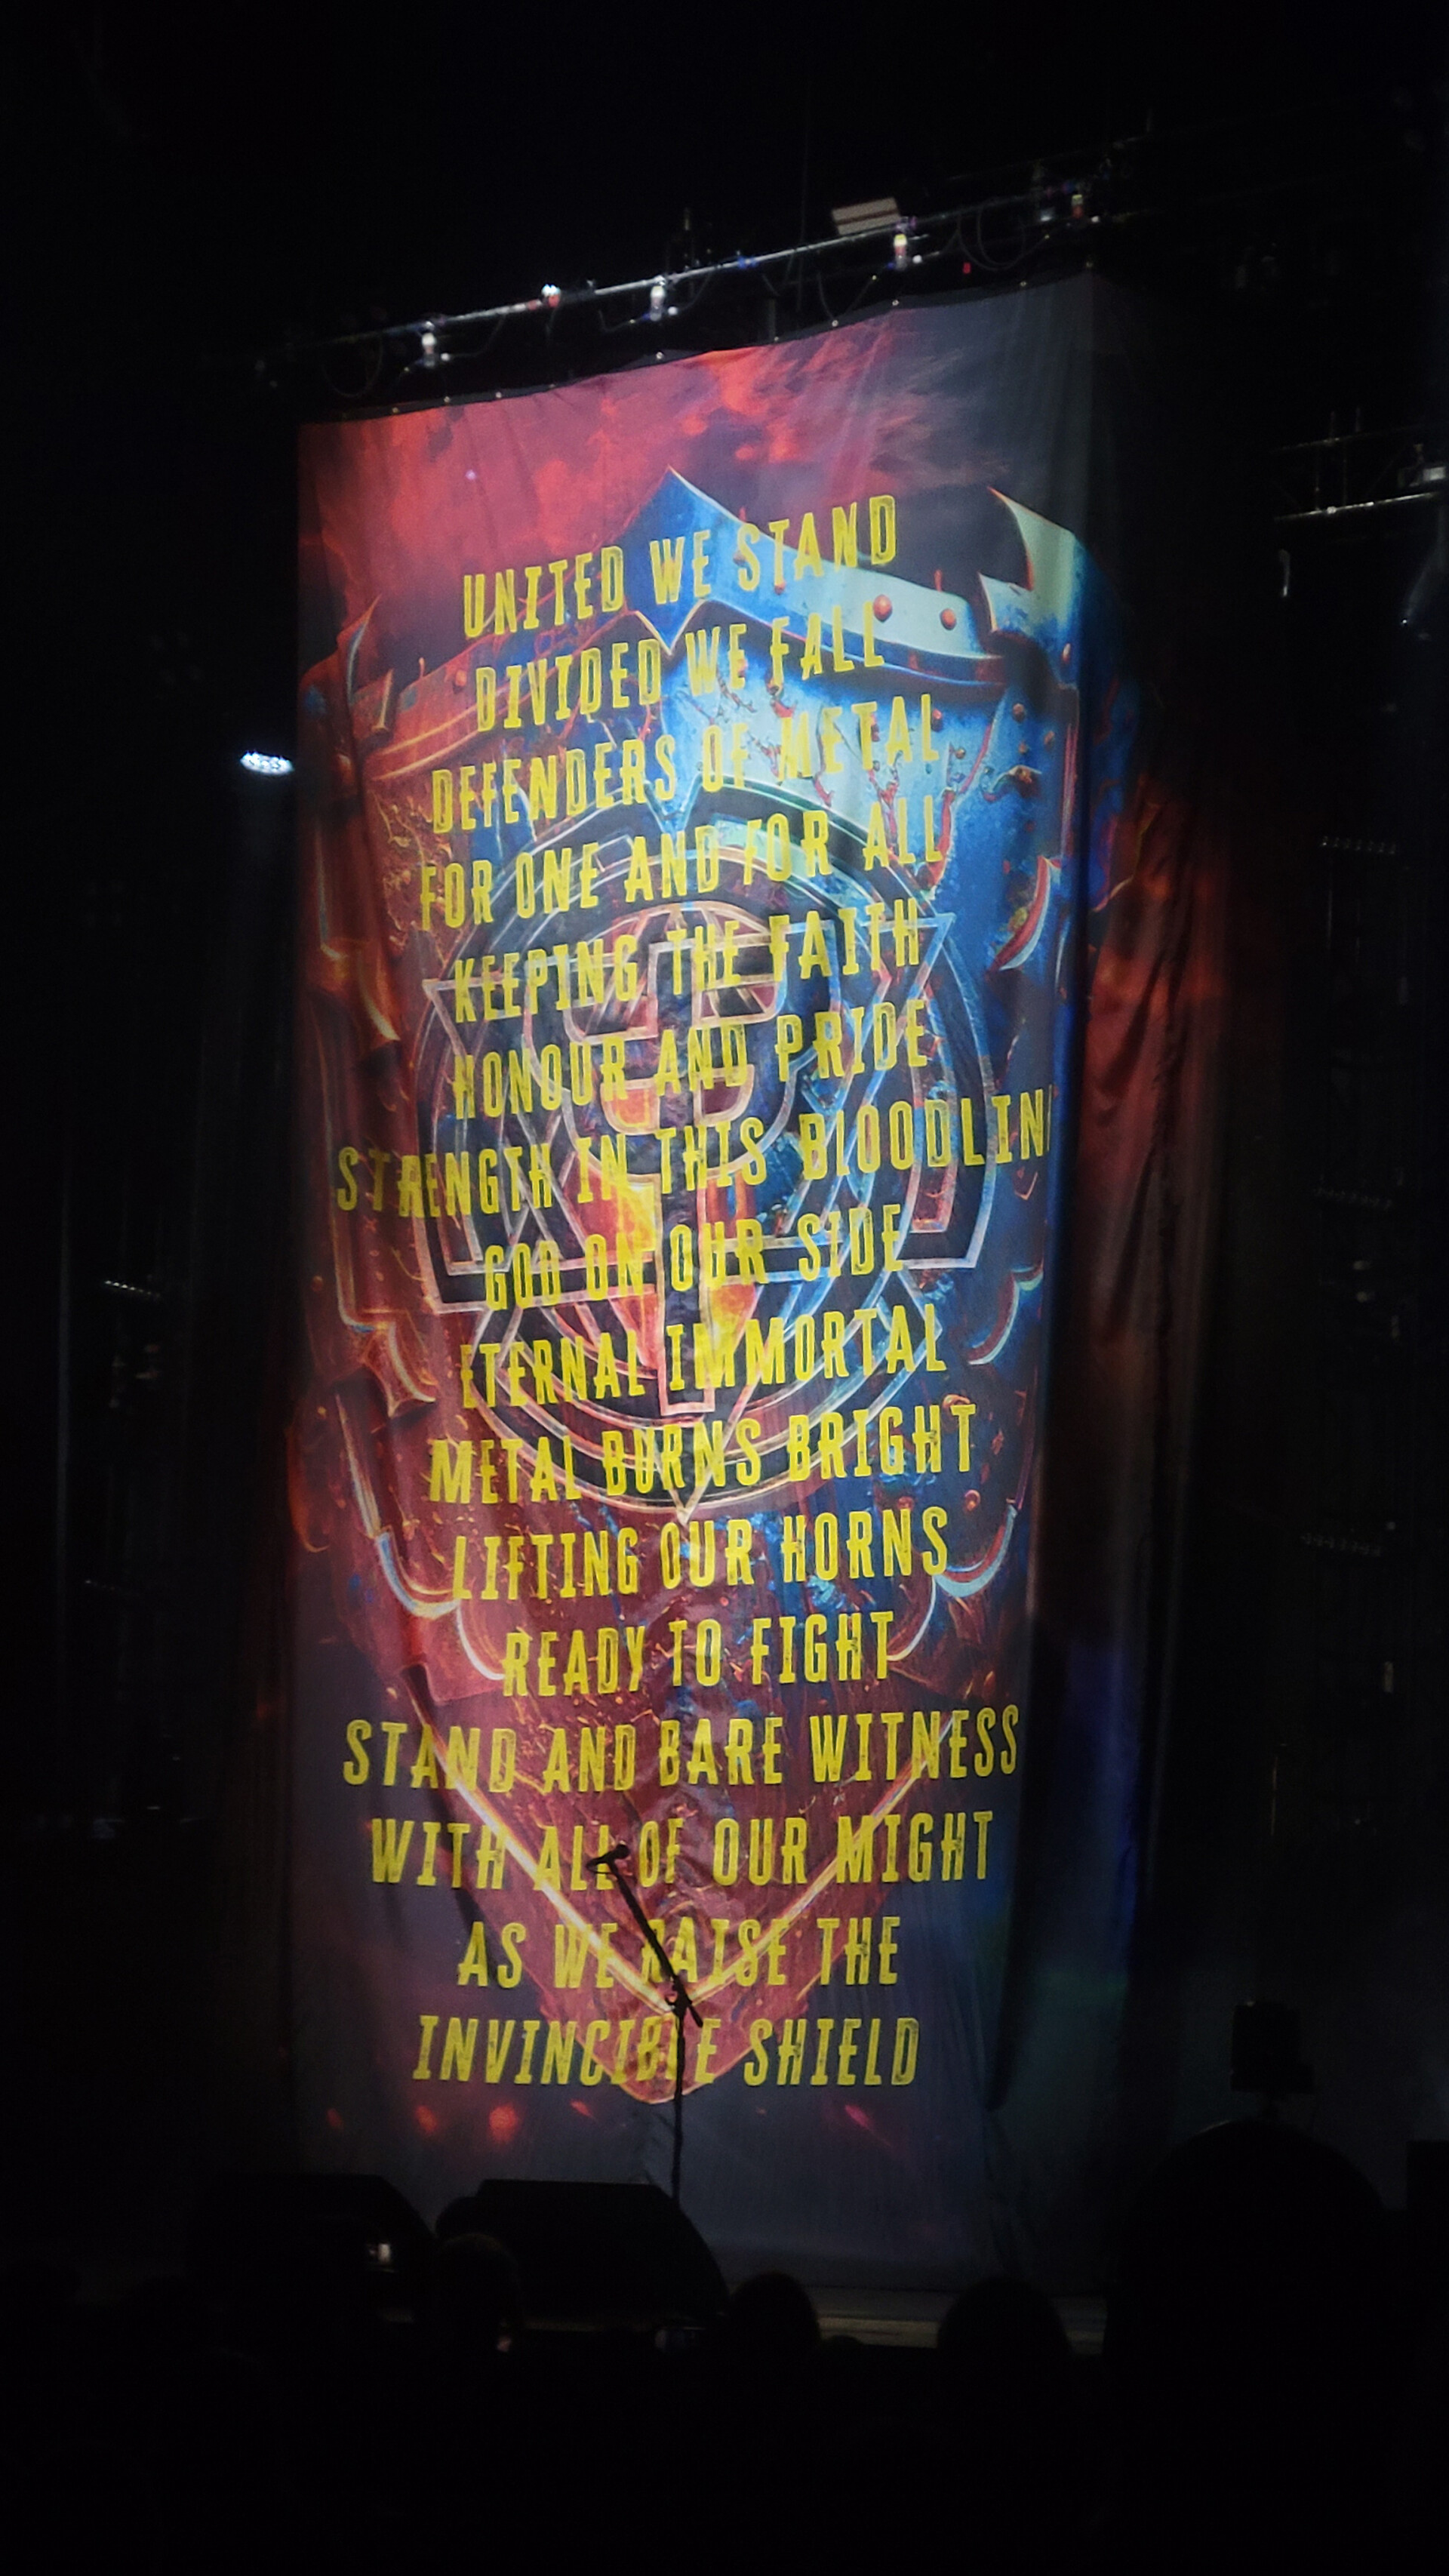 UNITED WE STAND
DIVIDED WE FALL
DEFENDERS OF METAL
FOR ONE AND FOR ALL
KEEPING THE FAITH
HONOUR AND PRIDE
STRENGTH IN THIS BLOODLINE
GOD ON OUR SIDE
ETERNAL IMMORTAL
METAL BURNS BRIGHT
LIFTING OUR HORNS
READY TO FIGHT
STAND AND BARE WITNESS
WITH ALL OF OUR MIGHT
AS WE RAISE THE
INVINCIBLE SHIELD